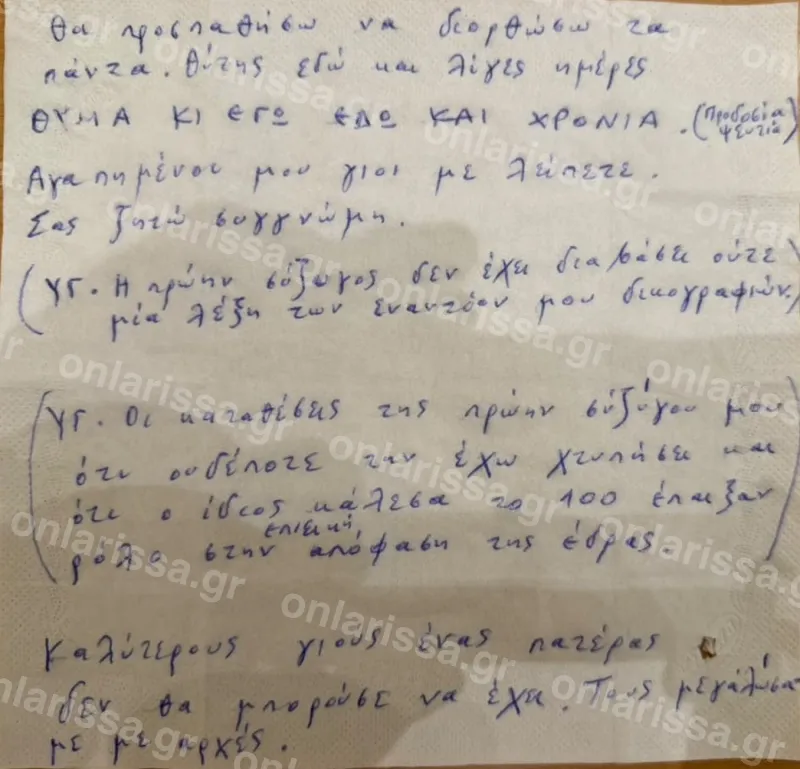 Θα προσπαθήσω να διορθώσω τα
πάντα. Θύτης εδώ και λίγες ημέρες
ΘΥΜΑ ΚΙ ΕΓΩ ΕΔΩ ΚΑΙ ΧΡΟΝΙΑ. (Προδοσία
ψευτιά)
Αγαπημένοι μου γιοι με λείπετε.
Σας ζητώ συγγνώμη.
(ΥΓ. Η πρώην σύζυγος δεν έχει διαβάσει ούτε
μία λέξη των εναντίον μου δικογραφιών.)
(ΥΓ. Οι καταθέσεις της πρώην συζύγου μου
ότι ουδέποτε την έχω χτυπήσει και
ότι ο ίδιος κάλεσα το 100 έπαιξαν
ρόλο στην επιεική απόφαση της έδρας.)
Καλύτερους γιους ένας πατέρας
δεν θα μπορούσε να έχει. Τους μεγάλωσα
με με αρχές.
onlarissa.gr